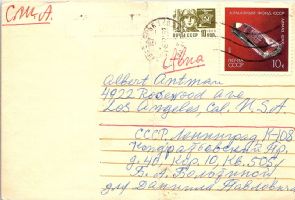 С.Ш.А.
АЛМАЗНЫЙ ФОНД СССР
ПОЧТА СССР 10 КОП
ПОЧТА СССР
10 к
Albert Antman
4922 Rosewood Ave
Los Angeles, Cal. U.S.A
СССР Ленинград К-108
Кондратьевский пр.
д. 40, кор. 10, кв. 505
Б. А. Болотиной
для Даниила Павловича